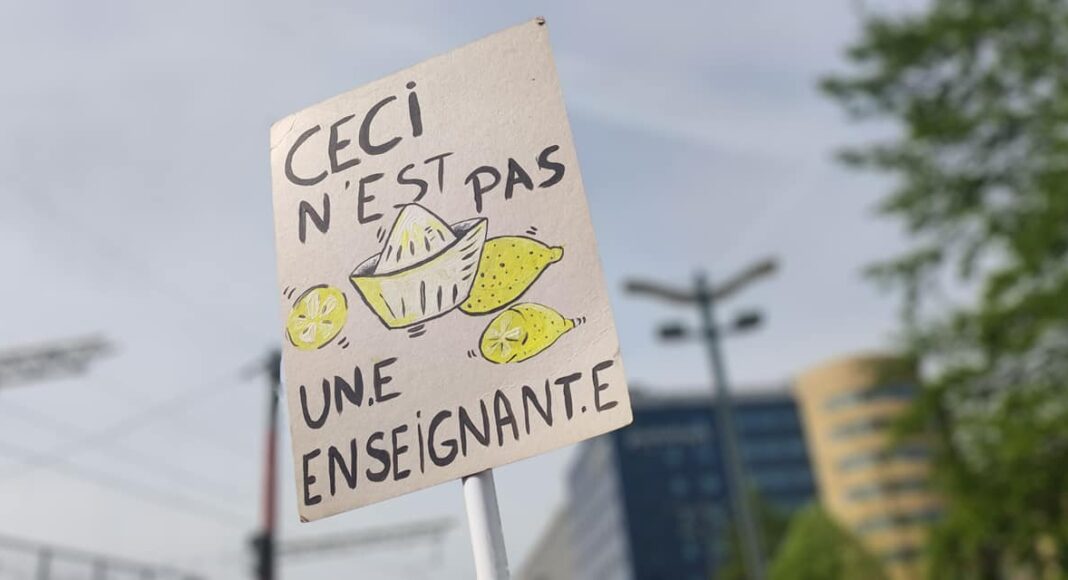 CECI
N'EST PAS
UN.E
ENSEIGNANT.E